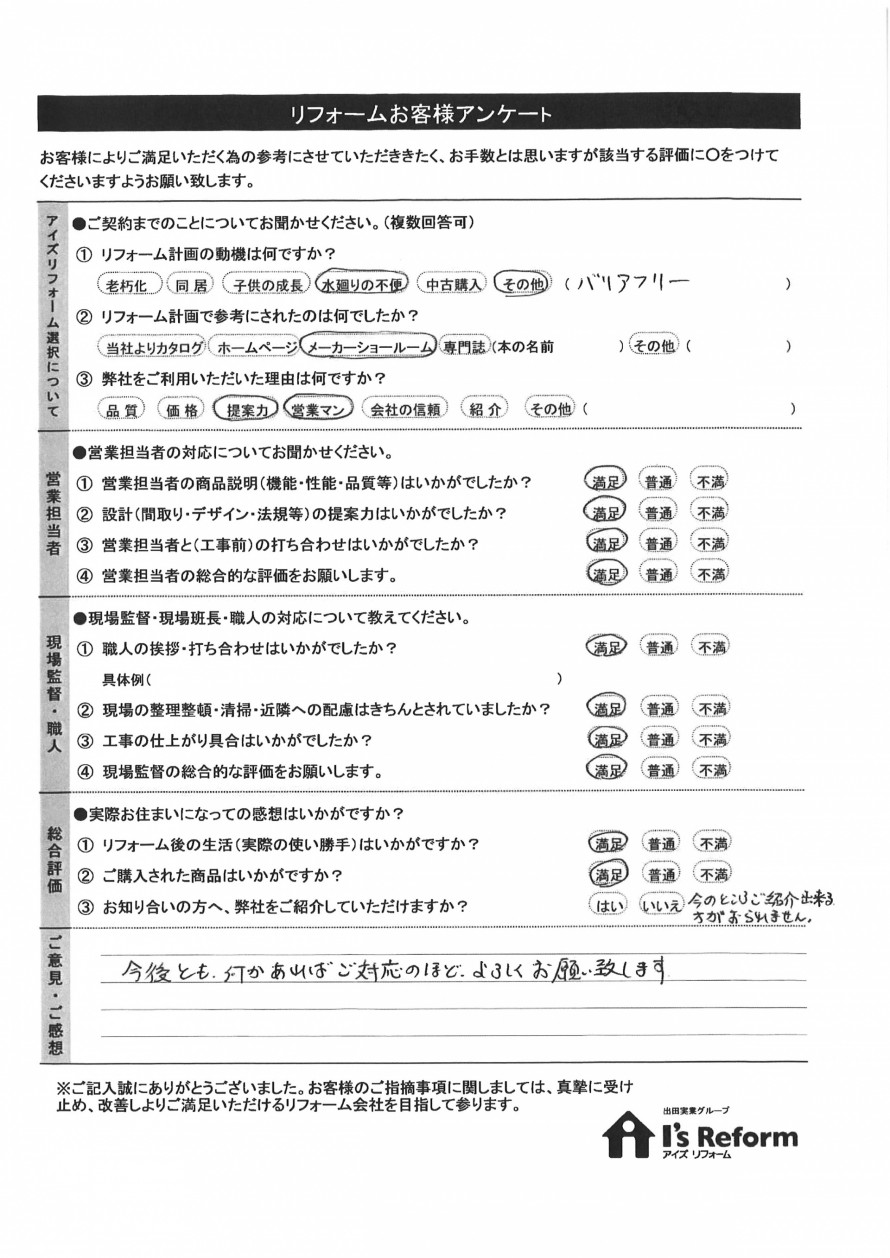 リフォームお客様アンケート
お客様によりご満足いただく為の参考にさせていただききたく、お手数とは思いますが該当する評価に〇をつけて
くださいますようお願い致します。
アイズリフォーム選択について
●ご契約までのことについてお聞かせください。(複数回答可)
① リフォーム計画の動機は何ですか？
老朽化 同居 子供の成長 水廻りの不便 中古購入 その他 ( バリアフリー )
② リフォーム計画で参考にされたのは何でしたか？
当社よりカタログ ホームページ メーカーショールーム 専門誌 (本の名前 ) その他 ( )
③ 弊社をご利用いただいた理由は何ですか？
品質 価格 提案力 営業マン 会社の信頼 紹介 その他 ( )
営業担当者
●営業担当者の対応についてお聞かせください。
① 営業担当者の商品説明(機能・性能・品質等)はいかがでしたか？ 満足 普通 不満
② 設計(間取り・デザイン・法規等)の提案力はいかがでしたか？ 満足 普通 不満
③ 営業担当者と(工事前)の打ち合わせはいかがでしたか？ 満足 普通 不満
④ 営業担当者の総合的な評価をお願いします。 満足 普通 不満
現場監督・職人
●現場監督・現場班長・職人の対応について教えてください。
① 職人の挨拶・打ち合わせはいかがでしたか？ 満足 普通 不満
具体例( )
② 現場の整理整頓・清掃・近隣への配慮はきちんとされていましたか？ 満足 普通 不満
③ 工事の仕上がり具合はいかがでしたか？ 満足 普通 不満
④ 現場監督の総合的な評価をお願いします。 満足 普通 不満
総合評価
●実際お住まいになっての感想はいかがですか？
① リフォーム後の生活(実際の使い勝手)はいかがですか？ 満足 普通 不満
② ご購入された商品はいかがですか？ 満足 普通 不満
③ お知り合いの方へ、弊社をご紹介していただけますか？ はい いいえ 今のところご紹介出来る
方がおられません。
ご意見・ご感想
今後とも、何かあればご対応のほど、よろしくお願い致します
※ご記入誠にありがとうございました。お客様のご指摘事項に関しましては、真摯に受け
止め、改善しよりご満足いただけるリフォーム会社を目指して参ります。
出田実業グループ
I's Reform
アイズ リフォーム